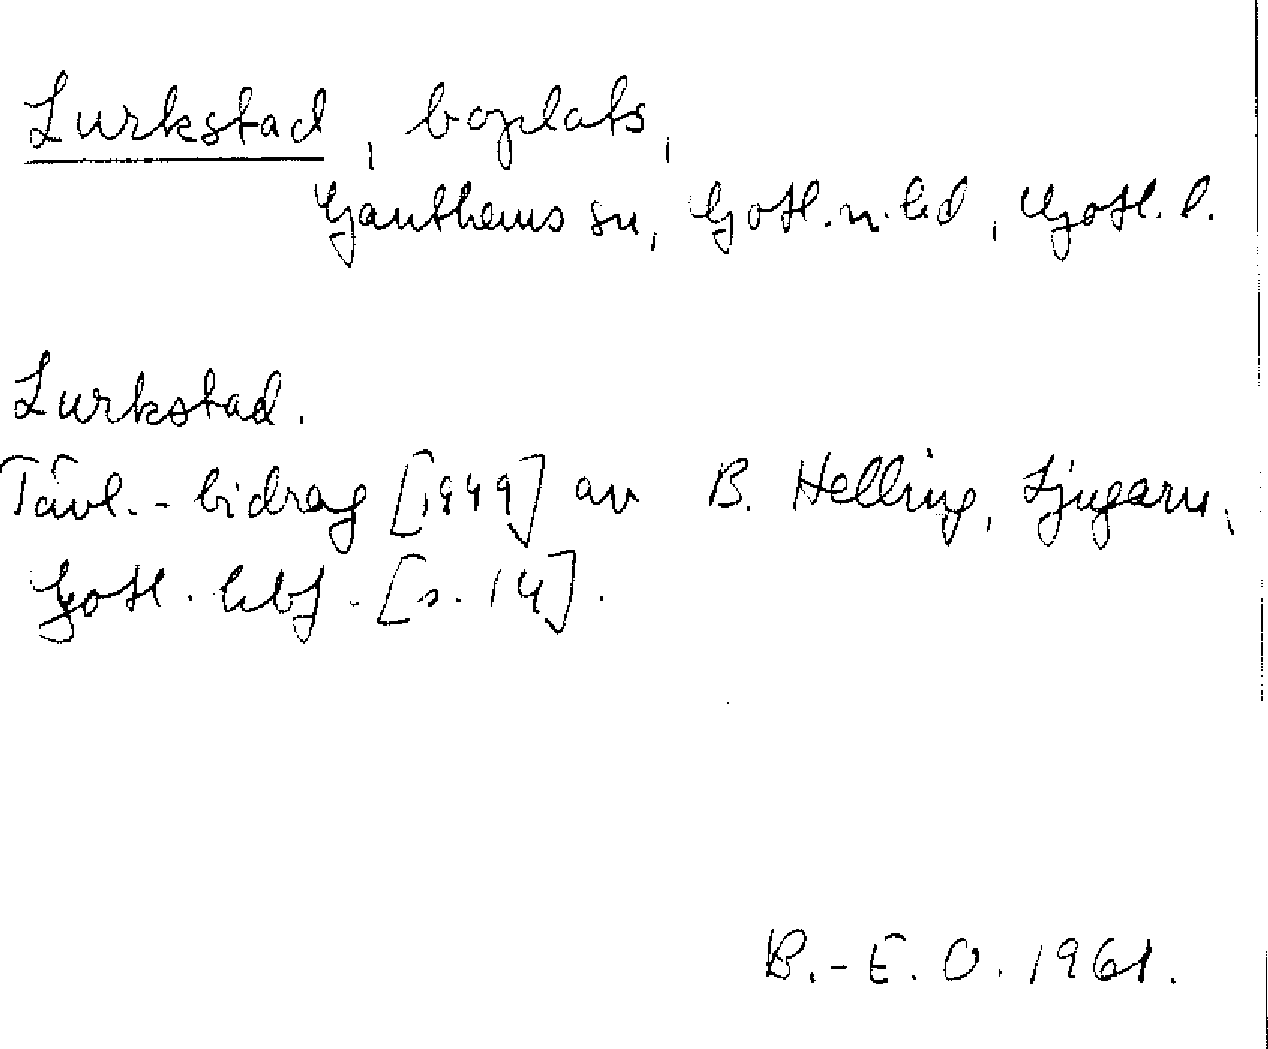 Lurkstad, boplats,
Ganthems sn, Gotl. n. hd, Gotl. l.
Lurkstad.
Tävl.-bidrag [1949] av B. Helling, Ljugarn,
Gotl. hbf. [s. 14].
B.-E. O. 1961.